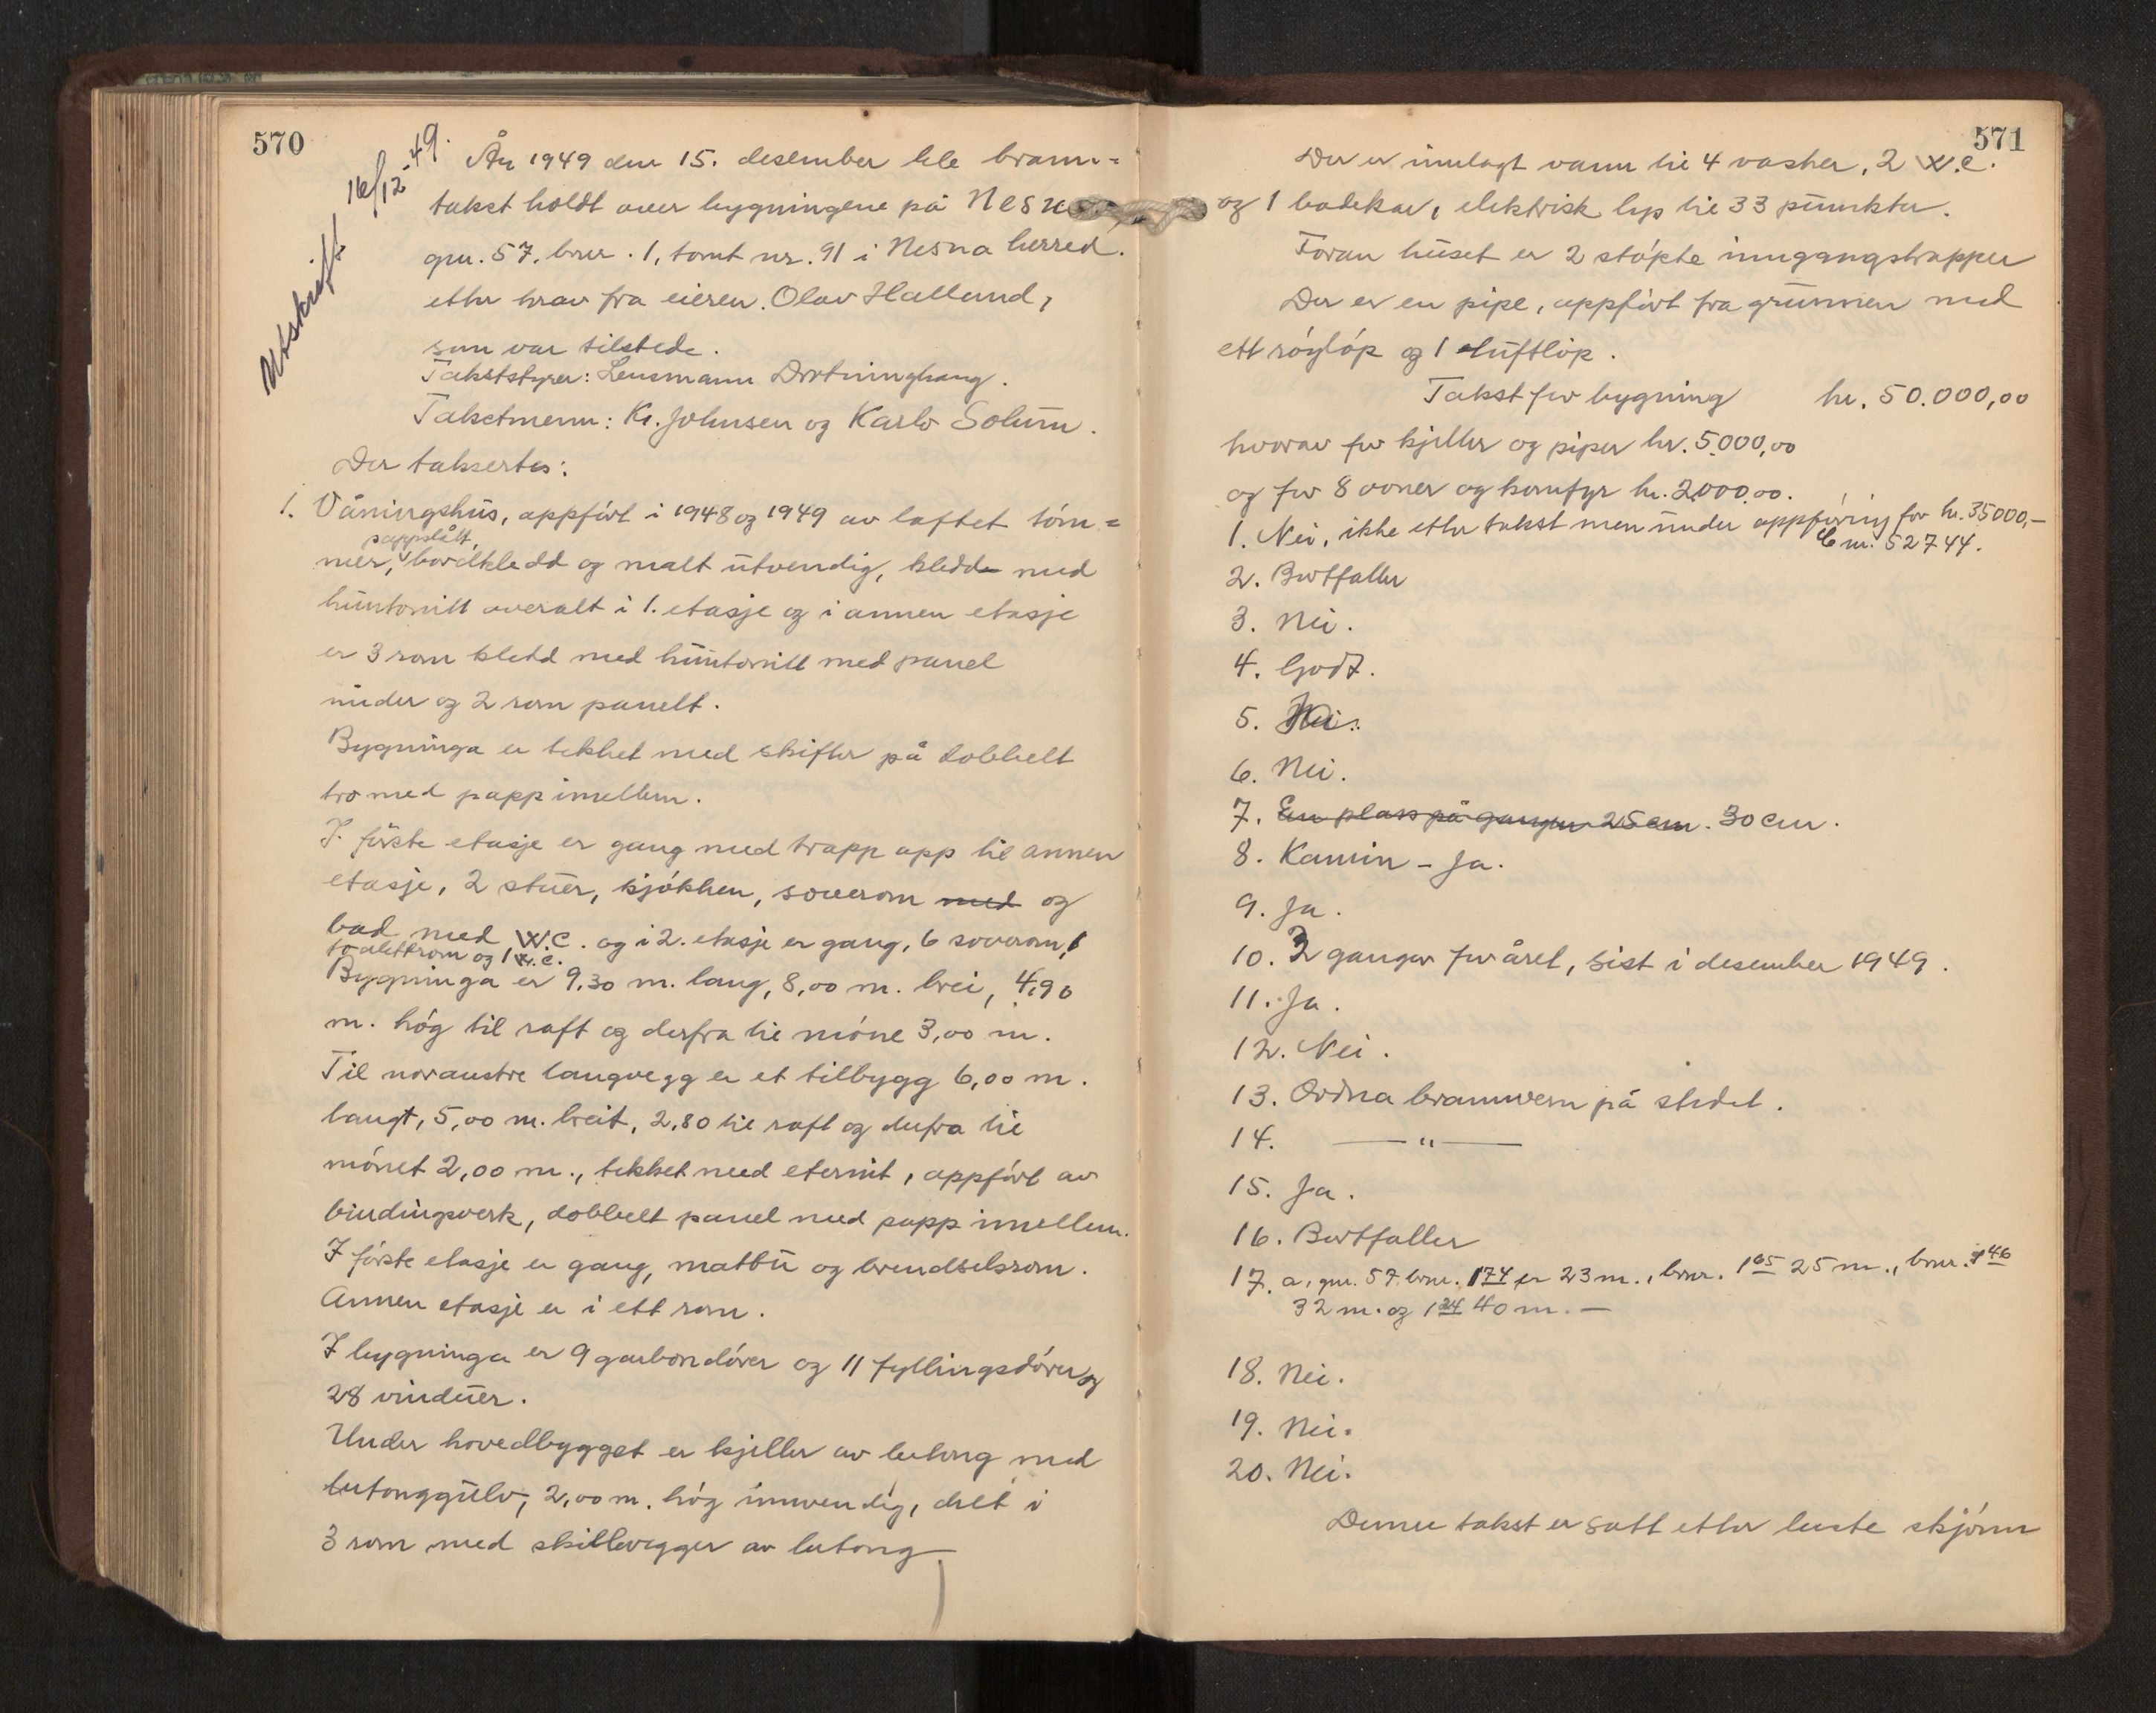 570
Utskrift 16/12-49.
År 1949 den 15. desember ble brann-
takst holdt over bygningene på Nesna
gnr. 57, bnr. 1, tomt nr. 91 i Nesna herred.
etter krav fra eieren Olav Halland,
som var tilstede.
Takststyrer: Lensmann Drotninghaug.
Takstmenn: Kr. Johnsen og Karlo Solum.
Der taksertes:
1. Våningshus, oppført i 1948 og 1949 av laftet töm=
pappslått,
mer, bordkledd og malt utvendig, kledd med
huntonitt overalt i 1. etasje og i annen etasje
er 3 rom kledd med huntonitt med panel
under og 2 rom panelt.
Bygninga er tekket med skifter på dobbelt
tro med papp imellem.
I förste etasje er gang med trapp opp til annen
etasje, 2 stuer, kjökken, soverom med og
bad med W.C. og i 2. etasje er gang, 6 soverom, 1
toalettrom og 1 w.c.
Bygninga er 9,30 m. lang, 8,00 m. brei, 4,90
m. hög til raft og derfra til möne 3,00 m.
Til noraustre langvegg er et tilbygg 6,00 m.
langt, 5,00 m. breit, 2,80 til raft og derfra til
mönet 2,00 m., tekket med eternit, oppfört av
bindingsverk, dobbelt panel med papp imellem.
I förste etasje er gang, matbu og brendselsrom.
Annen etasje er i ett rom.
I bygninga er 9 gaubondörer og 11 fyllingsdörer og
28 vinduer.
Under hovedbygget er kjeller av betong med
betonggulv, 2,00 m. hög innvendig, delt i
3 rom med skillevegger av betong
571
Der er innlagt vann til 4 vasker, 2 W.C.
og 1 badekar, elektrisk lys til 33 punkter.
Foran huset er 2 stöpte inngangstrapper
Der er en pipe, oppfört fra grunnen med
ett röyklöp og 1 luftlöp.
Takst for bygning kr. 50.000,00
hvorav for kjeller og piper kr. 5.000,00
og for 8 ovner og komfyr kr. 2.000,00.
1. Nei, ikke etter takst men under oppföring for kr. 35000,-
C nr. 52744.
2. Bortfaller
3. Nei.
4. Godt.
5. Nei.
6. Nei.
7. En plass på gangen 25 cm. 30 cm.
8. Kamin - Ja.
9. Ja.
10. 2 ganger for året, sist i desember 1949.
11. Ja.
12. Nei.
13. Ordna brannvern på stedet.
14. —— " ——
15. Ja.
16. Bortfaller
17. a, gnr. 57 bnr. 174 er 23 m., bnr. 165 25 m., bnr. 146
32 m. og 124 40 m. —
18. Nei.
19. Nei.
20. Nei.
Denne takst er satt etter beste skjönn